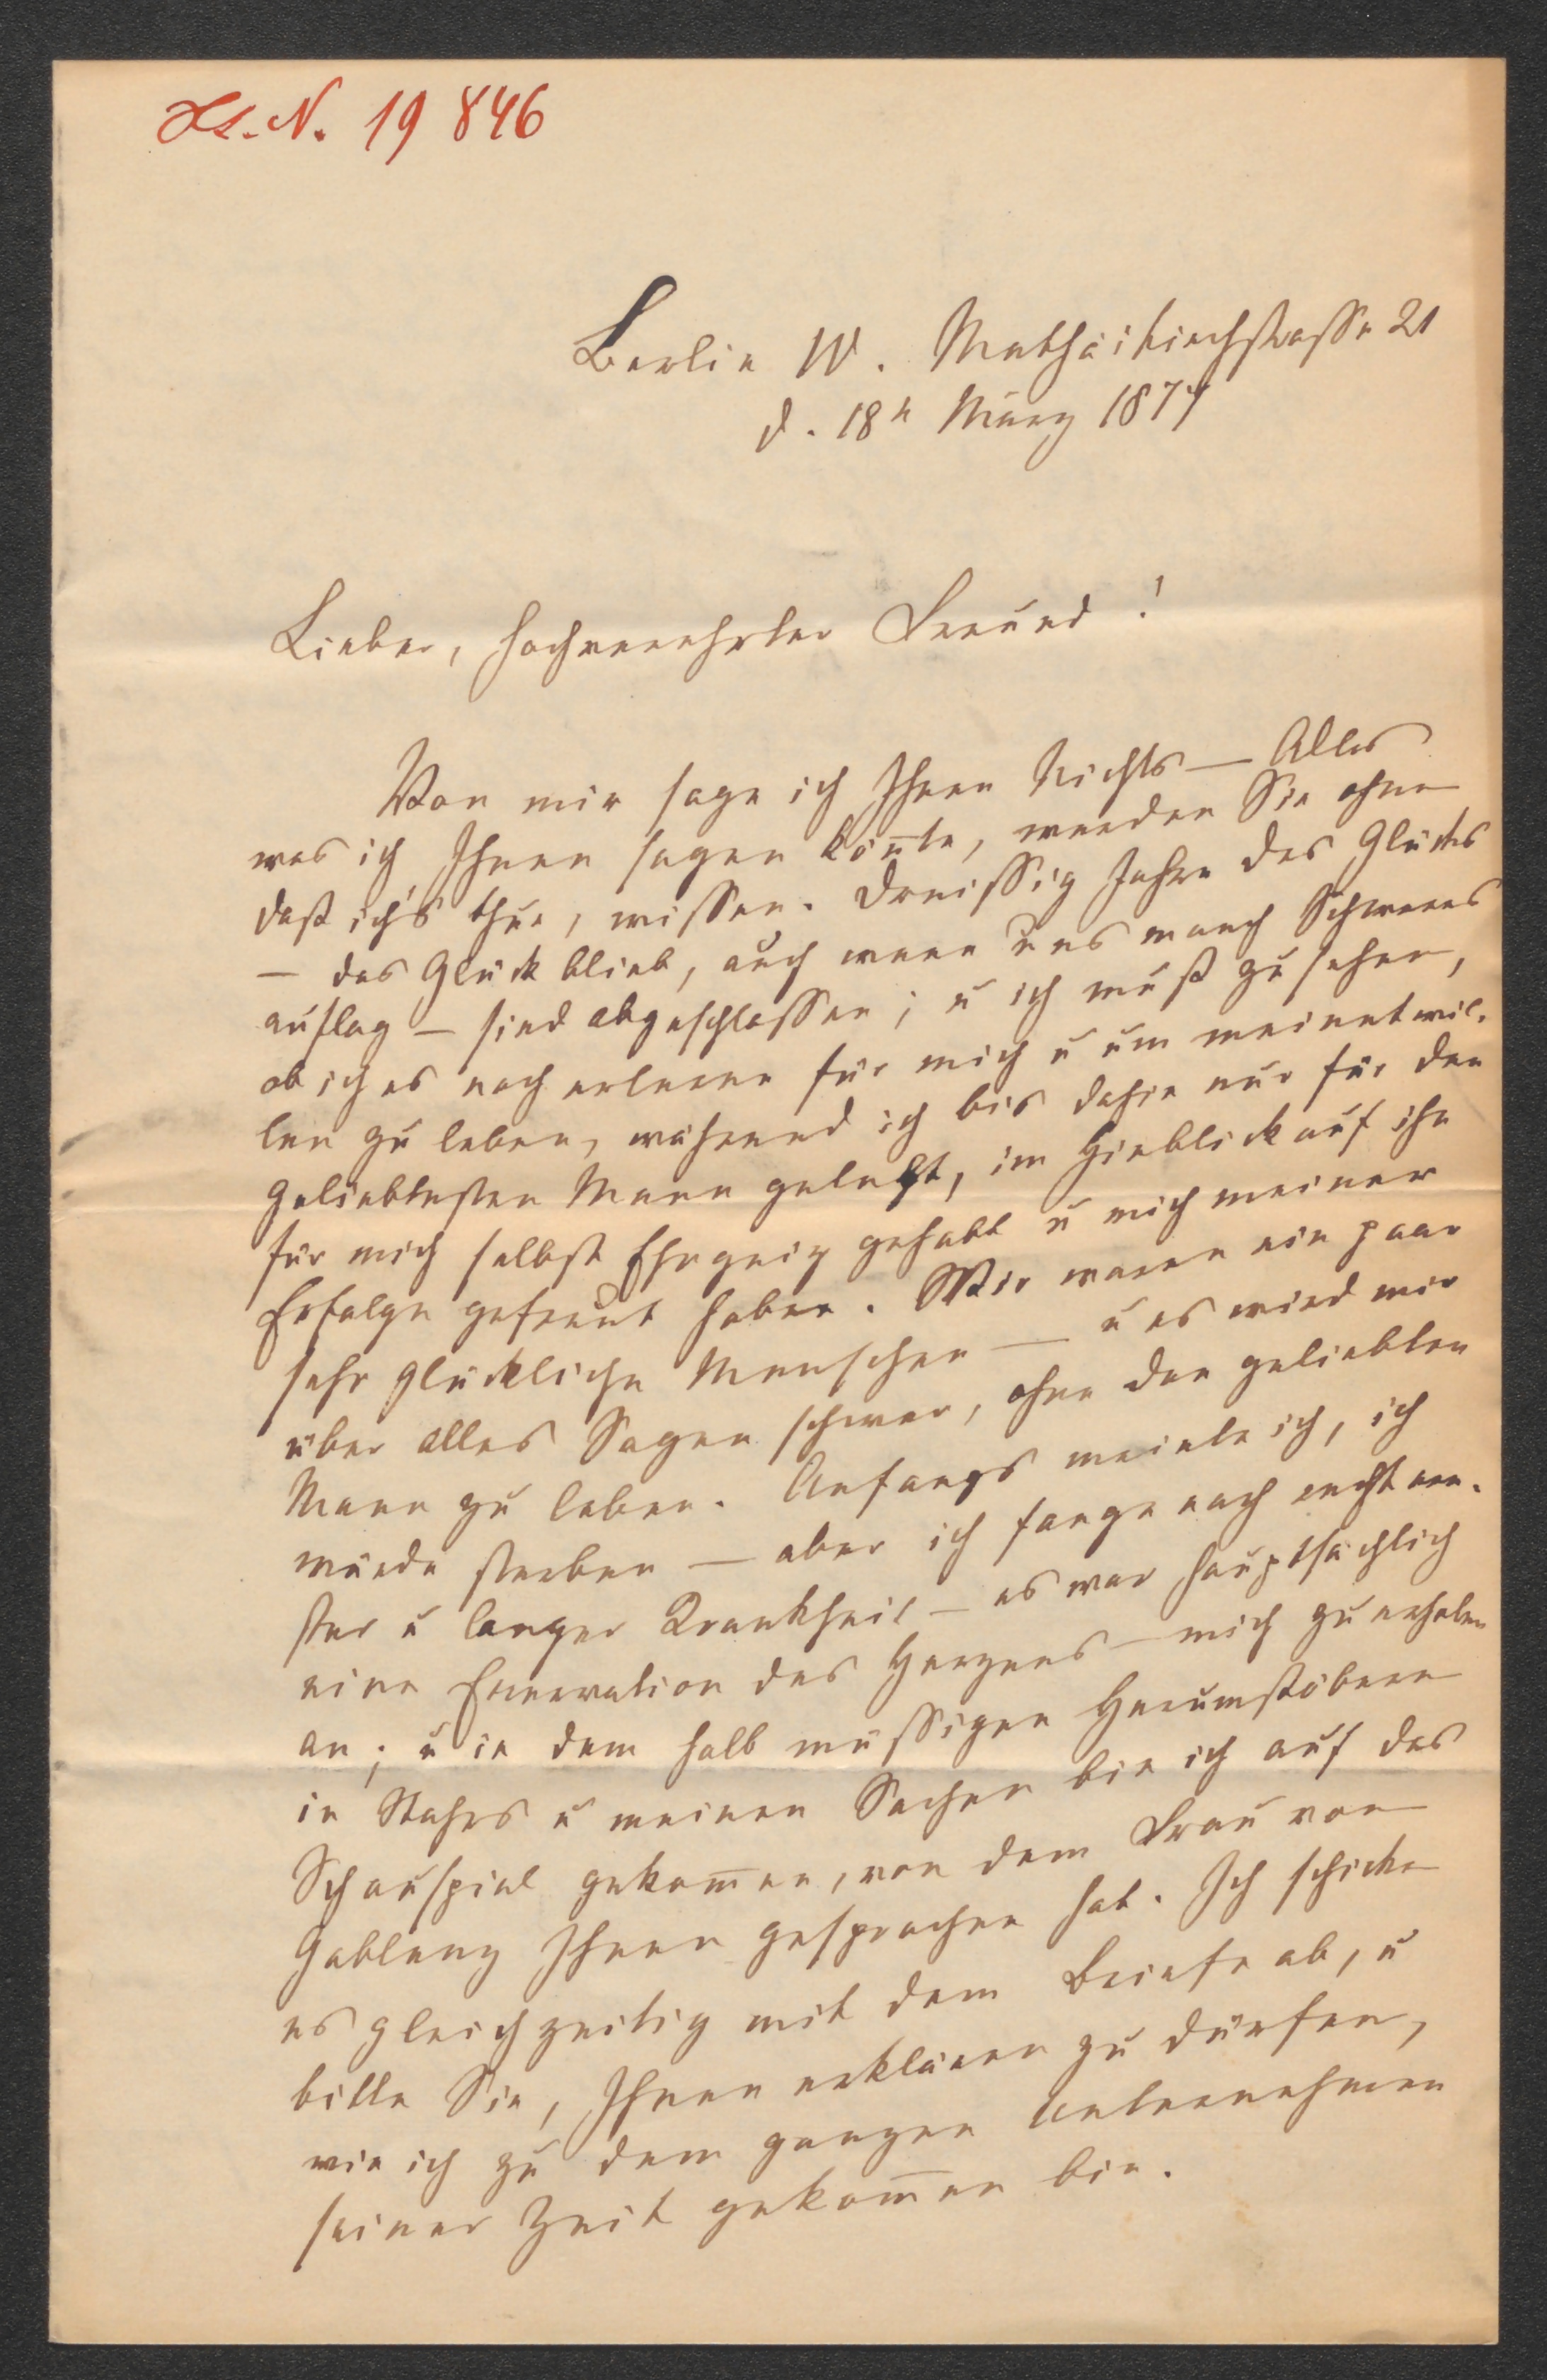 Hs. N. 19 846
Berlin W. Mathäikirchstrasse 21
d. 18t März 1877
Lieber, hochverehrter Freund!
Von mir sage ich Ihnen Nichts — Alles
was ich Ihnen sagen kön̄te, werden Sie ohne
daß ich's thue, wissen. Dreissig Jahre des Glückes
— das Glück blieb, auch wenn uns manch Schweres
auflag — sind abgeschlossen; u ich muß zu sehen,
ob ich es noch erlerne für mich u um meinetwil-
len zu leben, während ich bis dahin nur für den
geliebtesten Mann gelebt, im Hinblick auf ihn
für mich selbst Ehrgeiz gehabt u mich meiner
Erfolge gefreut habe. Wir waren ein paar
sehr glückliche Menschen — u es wird mir
über alles Sagen schwer, ohne den geliebten
Mann zu leben. Anfangs meinte ich, ich
würde sterben — aber ich fange nach recht ern-
ster u langer Krankheit — es war hauptsächlich
eine Enervation des Herzens — mich zu erholen
an; u in dem halb müssigen Herumstöbern
in Stahrs u meinen Sachen bin ich auf das
Schauspiel gekom̄en, von dem Frau von
Gablenz Ihnen gesprochen hat. Ich schicke
es gleichzeitig mit dem Briefe ab, u
bitte Sie, Ihnen erklären zu dürfen,
wie ich zu dem ganzen Unternehmen
seiner Zeit gekom̄en bin.